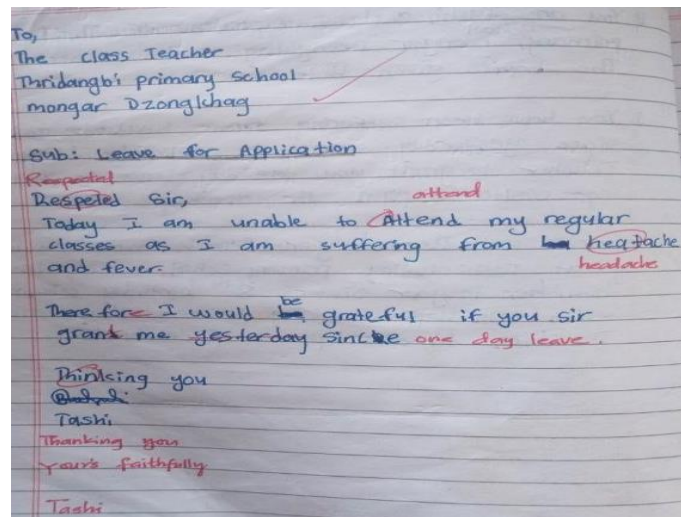 To,
The class Teacher
Thridangbi primary school
mongar Dzongkhag
Sub: Leave for Application
Respected
Respeted Sir,
attend
Today I am unable to Attend my regular
classes as I am suffering from heatache
and fever.
headache
be
Therefore I would grateful if you sir
grant me yesterday since one day leave.
Thinking you
Tashi
Thanking you
Your's faithfully
Tashi